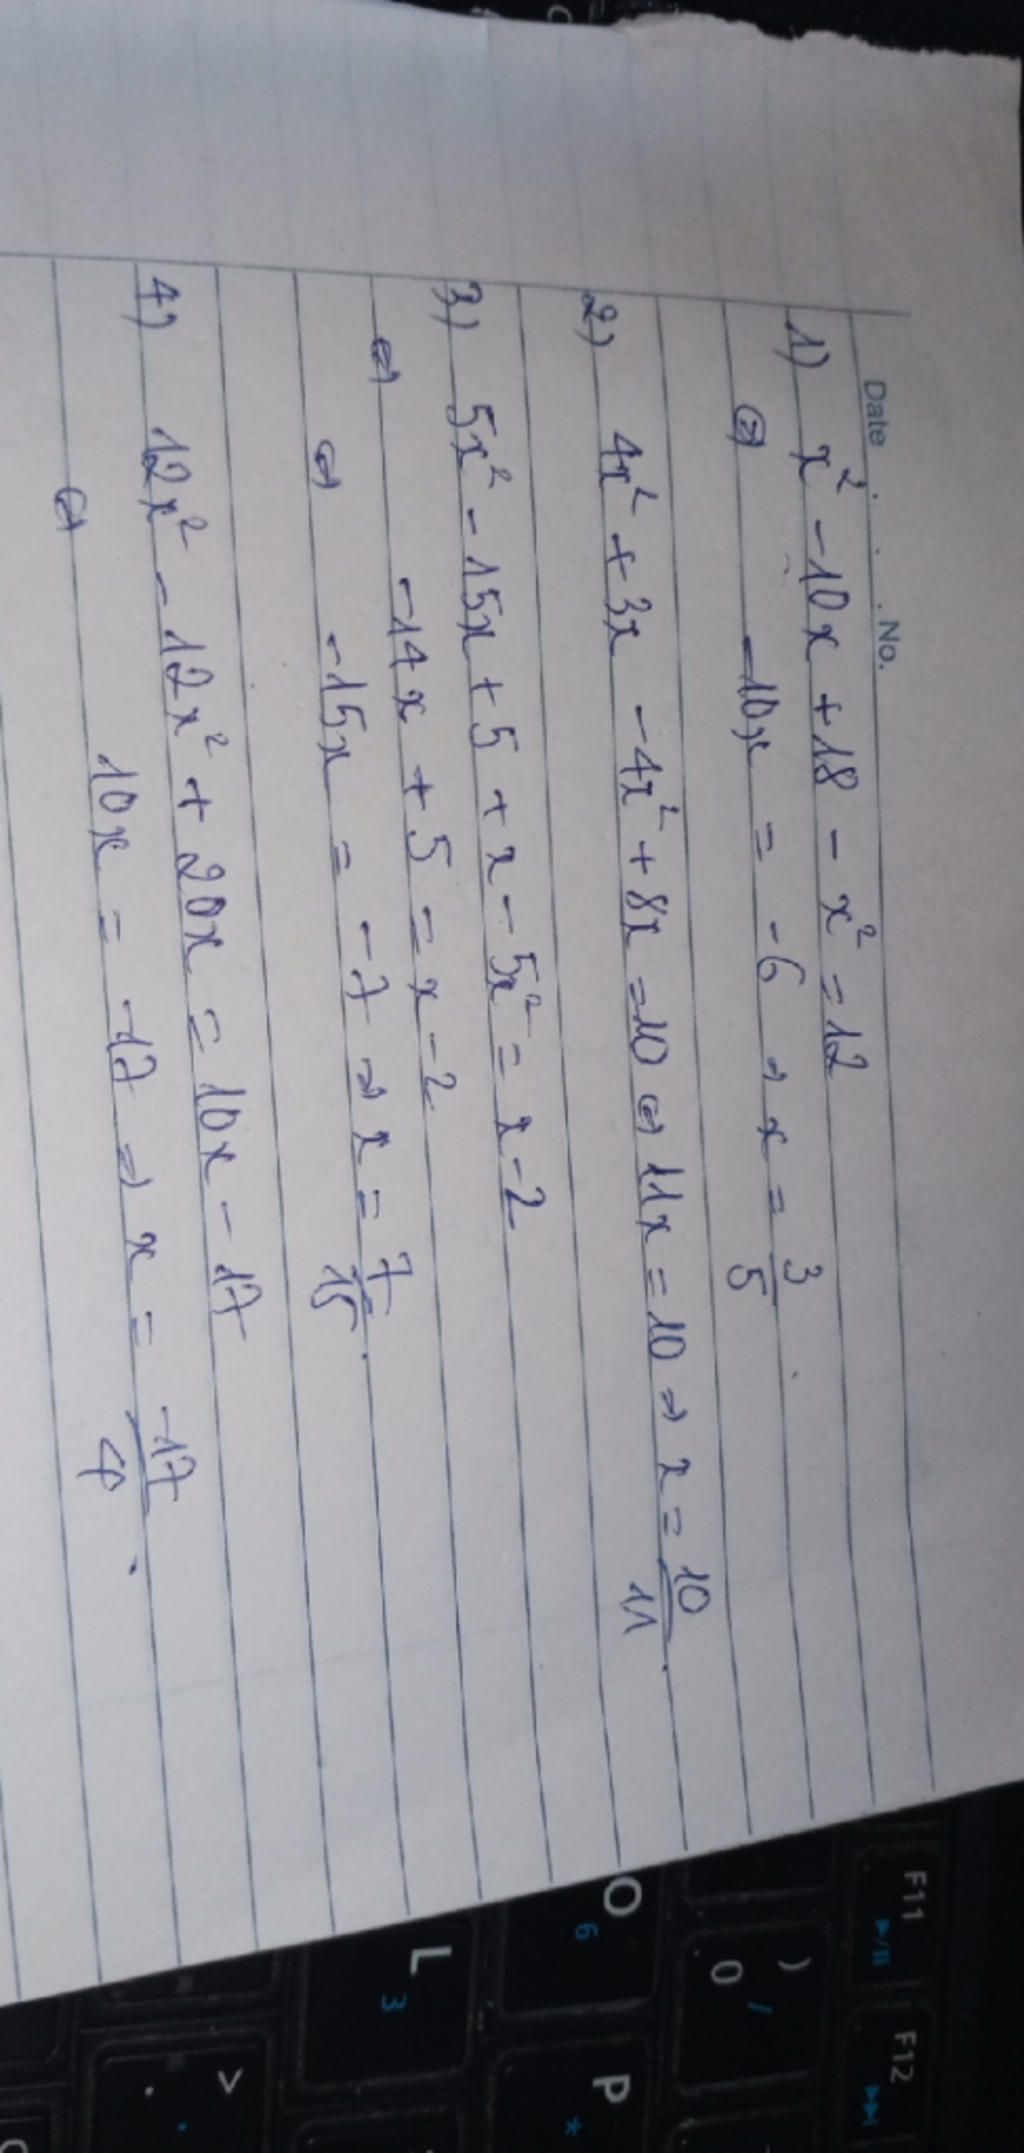 Date . . . No.
1) x² - 10x + 18 - x² = 12
⇔ -10x = -6 → x = 3/5.
2) 4x² + 3x - 4x² + 8x = 10 ⇔ 11x = 10 ⇒ x = 10/11.
3) 5x² - 15x + 5 + x - 5x² = x - 2
⇔ -14x + 5 = x - 2
⇔ -15x = -7 ⇒ x = 7/15.
4) 12x² - 12x² + 20x = 10x - 17
⇔ 10x = -17 ⇒ x = -17/
F11
F12
)
0 /
O 6
P *
L 3
>
.